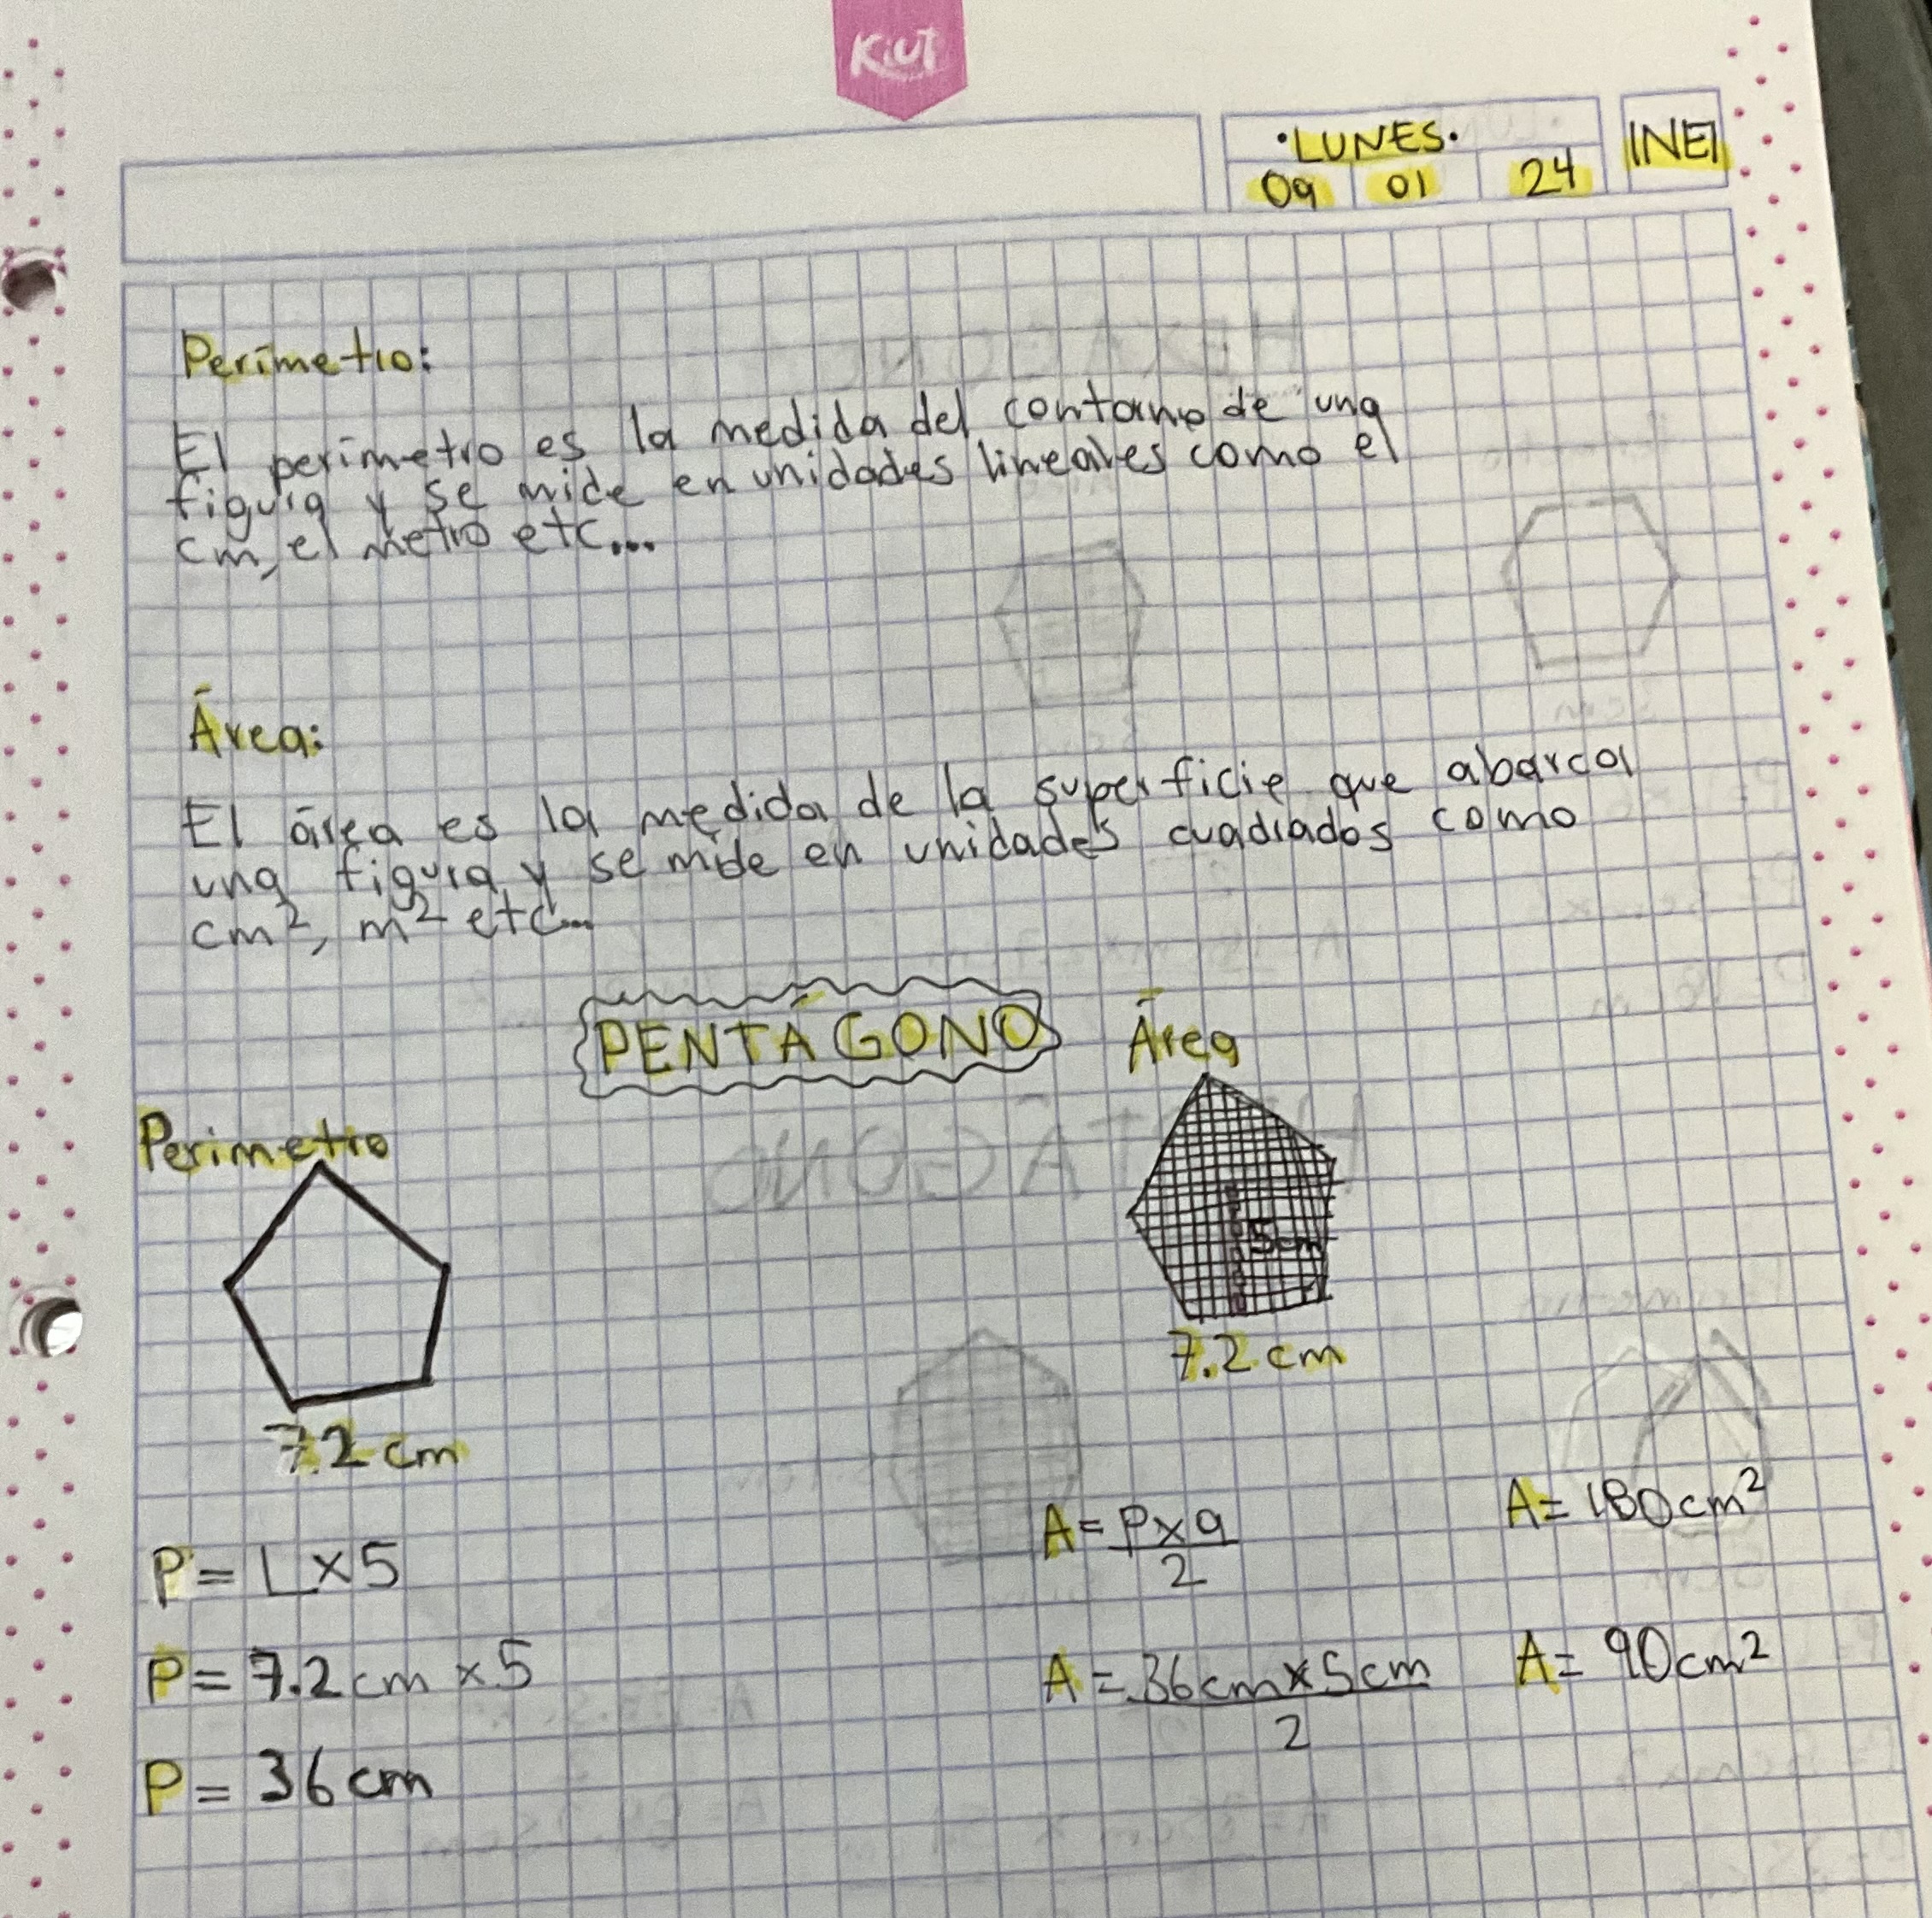 Kiut
•LUNES•
09 01 24
INEI
Perímetro:
El perímetro es la medida del contorno de una
figura y se mide en unidades lineales como el
cm, el metro etc...
Área:
El área es la medida de la superficie que abarca
una figura y se mide en unidades cuadrados como
cm², m² etc...
PENTÁGONO
Área
Perimetro
5cm
7.2 cm
7.2 cm
A= P x a / 2
A= 180cm²
P= L x 5
P= 7.2cm x 5
A = 36cm x 5cm / 2
A= 90cm²
P= 36cm